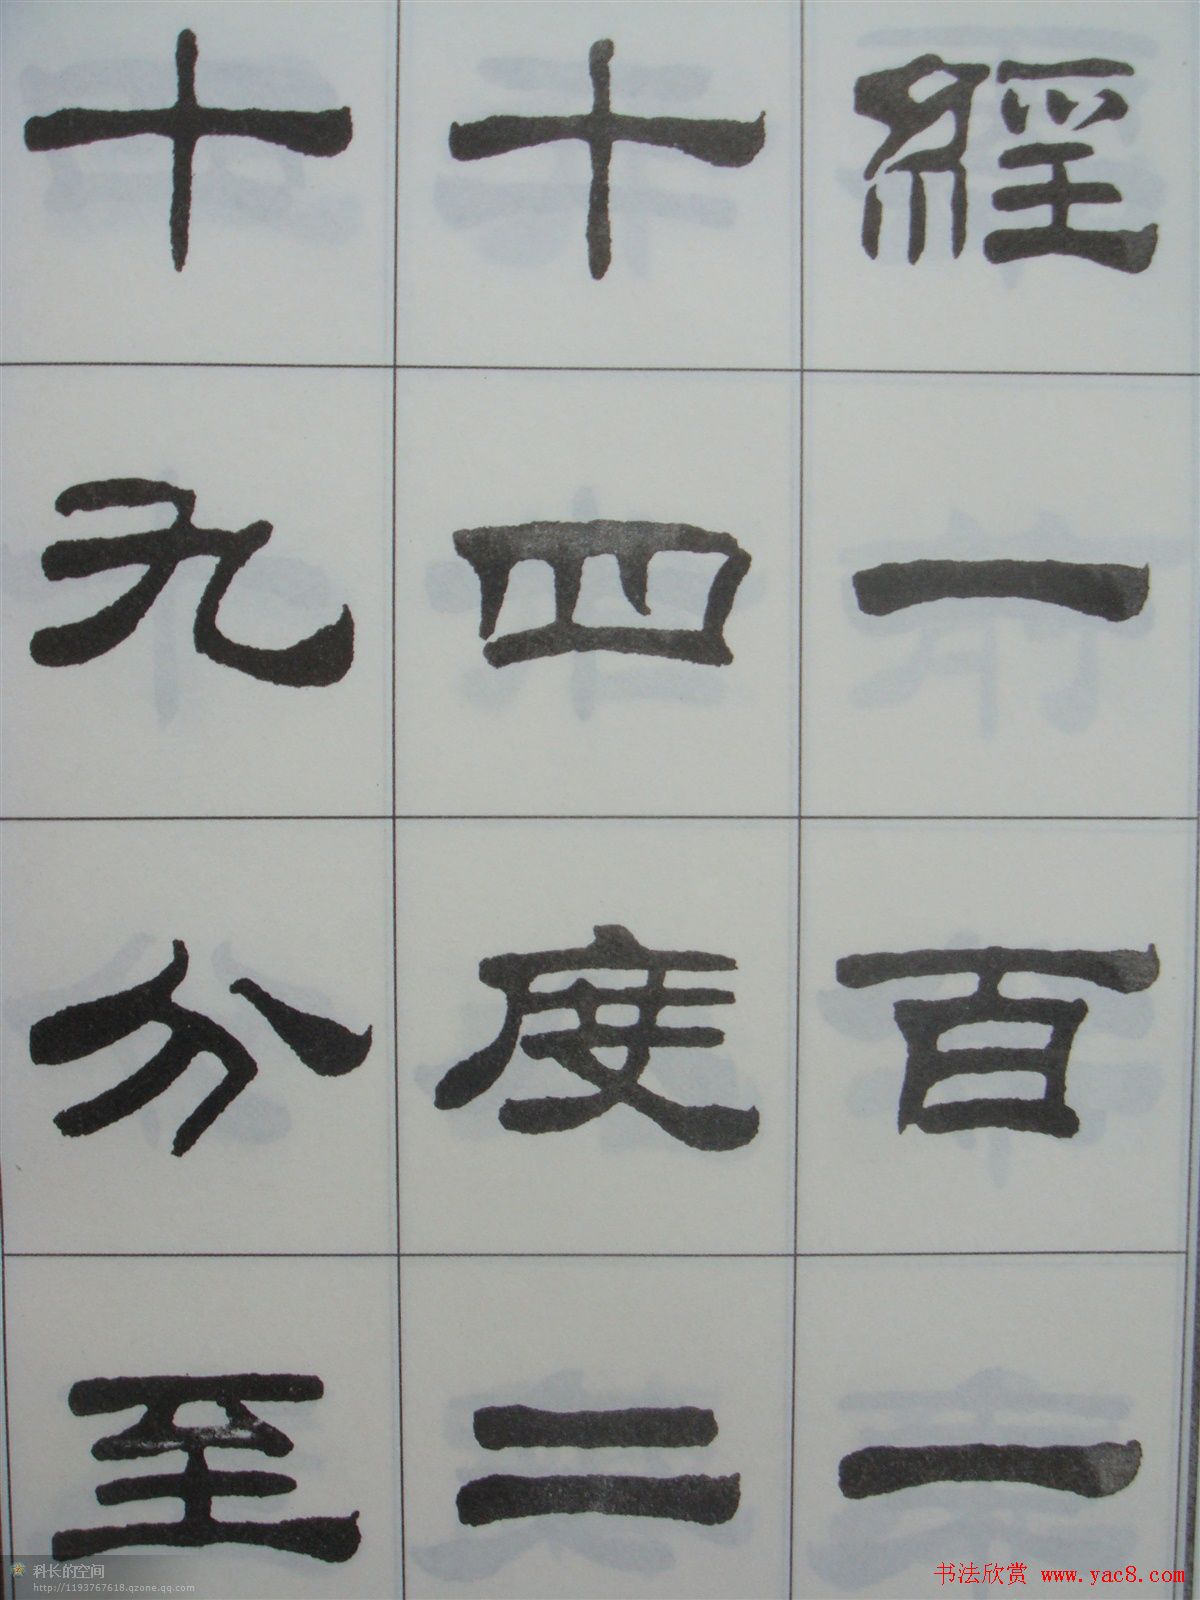 經一百一
十四度二
十九分至
科长的空间
http://1193767618.qzone.qq.com
书法欣赏 www.yac8.com